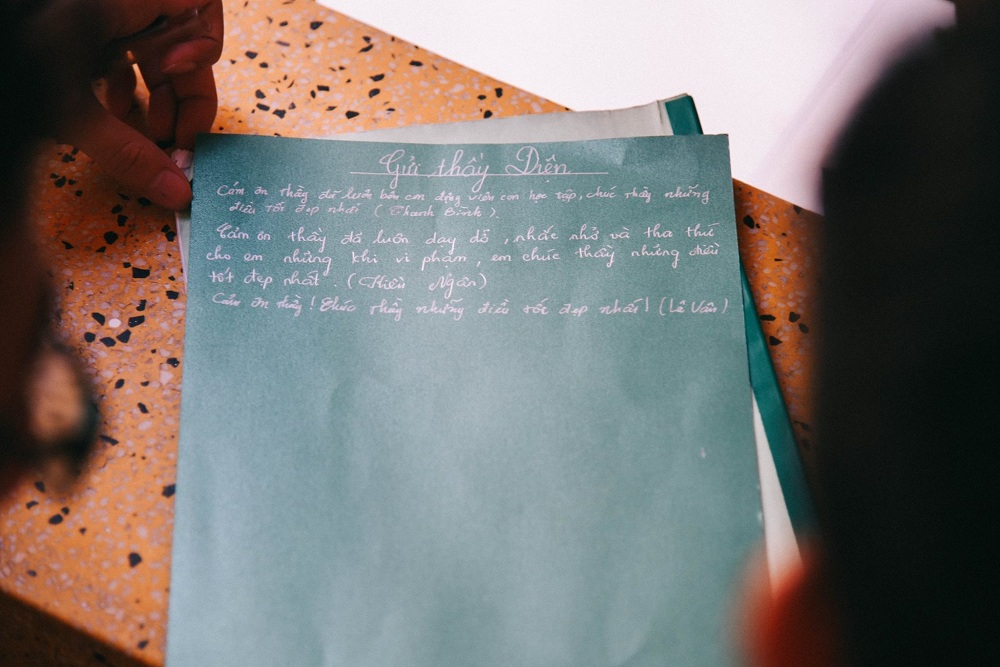 Gửi thầy Diễn
Cảm ơn thầy đã luôn bên con động viên con học tập, chúc thầy những
điều tốt đẹp nhất (Thanh Bình).
Cảm ơn thầy đã luôn dạy dỗ, nhắc nhở và tha thứ
cho em những khi vi phạm, em chúc thầy những điều
tốt đẹp nhất. (Kiều Ngân)
Cảm ơn thầy! Chúc thầy những điều tốt đẹp nhất! (Lê Vân)